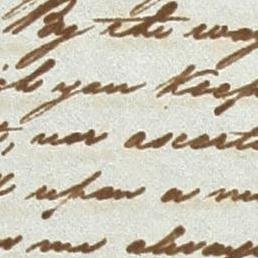 By the way
you keep
nor ascerta
upon a m
me always